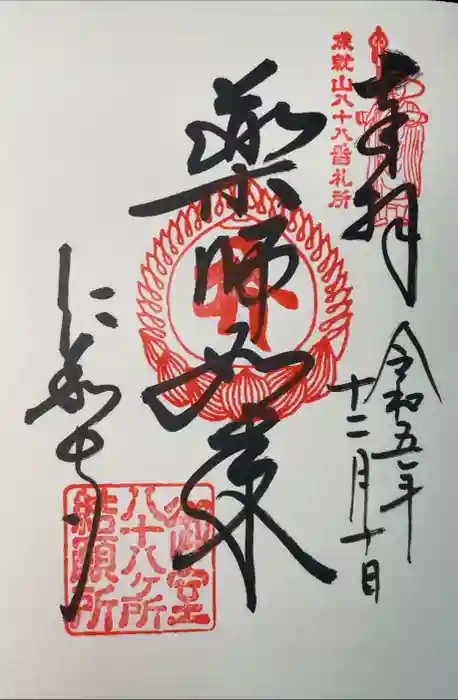 奉拝
成就山八十八番札所
令和五年
十二月十日
薬師如来
仁和寺
御室
八十八ヶ所
結願所